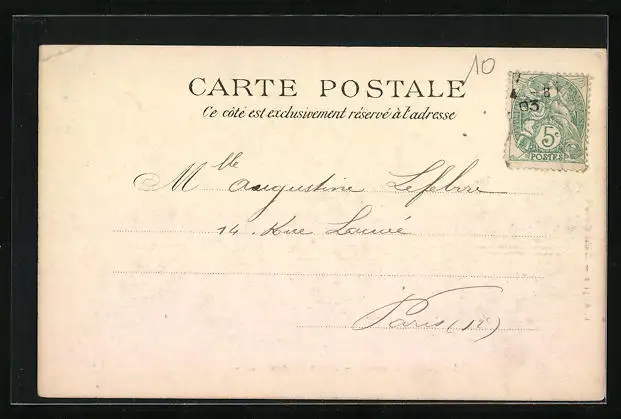 10
CARTE POSTALE
Ce côté est exclusivement réservé à l'adresse
8
03
5c
POSTES
Mlle Augustine Lefebvre
14. Rue
Paris (